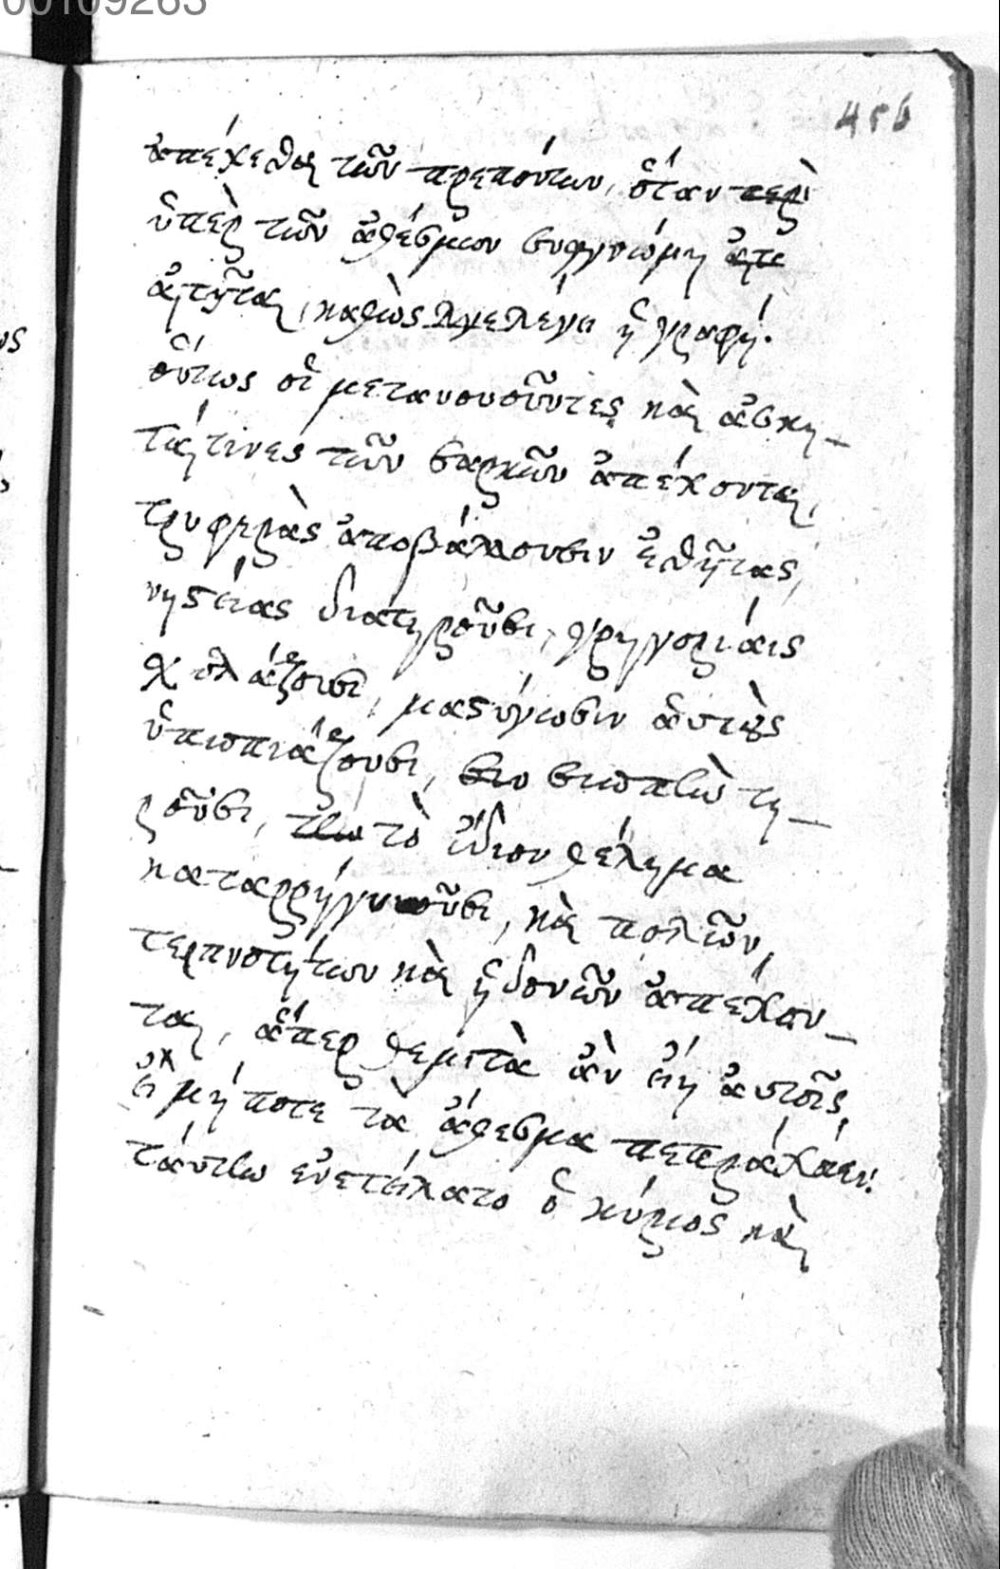 00109263
456
ἀπέχεσθαι τῶν πρεπόντων, ὅταν περὶ
ὑπὲρ τῶν ἀθέσμων συγγνώμη
αἰτῆται, καθὼς λέγει ἡ γραφή.
οὕτως οἱ μετανοοῦντες καὶ ἀσκη-
ταί τινες τῶν σαρκῶν ἀπέχονται,
τρυφερὰς ἀποβάλλουσιν ἐσθῆτας,
νηστείας διατηροῦσι, γρηγορίαις
σχολάζουσι, μαστίγωσιν ἑαυτοὺς
ὑπωπιάζουσι, σιωπὴν τη-
ροῦσι, τὸ ἴδιον θέλημα
καταρρήγνυουσι, καὶ πολλῶν
τερπνοτήτων καὶ ἡδονῶν ἀπέχον-
ται, ἅπερ θεμιτὰ ἂν εἴη αὐτοῖς,
εἰ μήποτε τὰ ἄθεσμα πεπράχασι.
ταύτην ἐνετείλατο ὁ κύριος καὶ